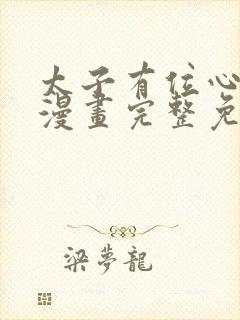 太子有位心
漫畫完整免
梁夢龍